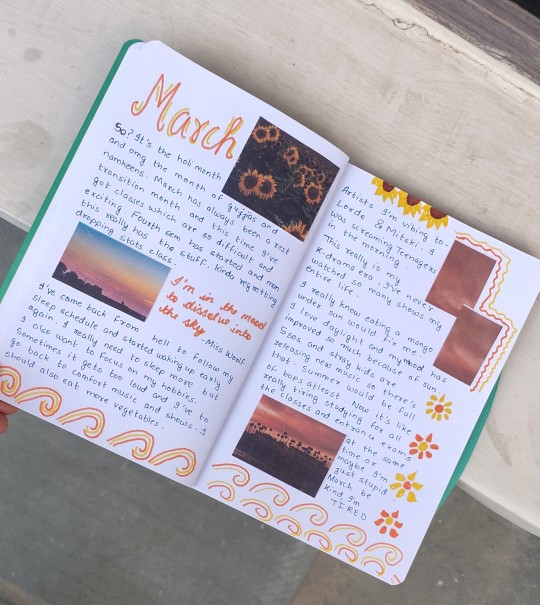 March
So? It's the holi month
and omg the month of gujjias and
namkeens. March has always been a
transition month and this time I've
got classes which are so difficult and
exciting. Fourth sem has started and man
this really has the stuff. Kinda regretting
dropping stats class.
I'm in the mood
to dissolve into
the sky
- Miss Woolf
I've come back from hell to follow my
sleep schedule and started waking up early
again. I really need to sleep more but
I also want to focus on my hobbies.
Sometimes it gets too loud and I've to
go back to comfort music and shows. I
should also eat more vegetables.
Artists I'm vibing to-
Lorde & Mitski. I
was screaming Teenagers
in the morning.
This really is my
k-drama era, I've never
watched so many shows my
entire life.
I really know eating a mango
under sun would fix me.
I love daylight and my mood has
improved so much because of sun
5sos and stray kids are
releasing new music so there's
that. Summer would be full
of bops atleast. Now it's like
really tiring studying for all
the classes and entrance exams
at the same
time or
maybe I'm
just stupid
March be
kind, I'm
TIRED